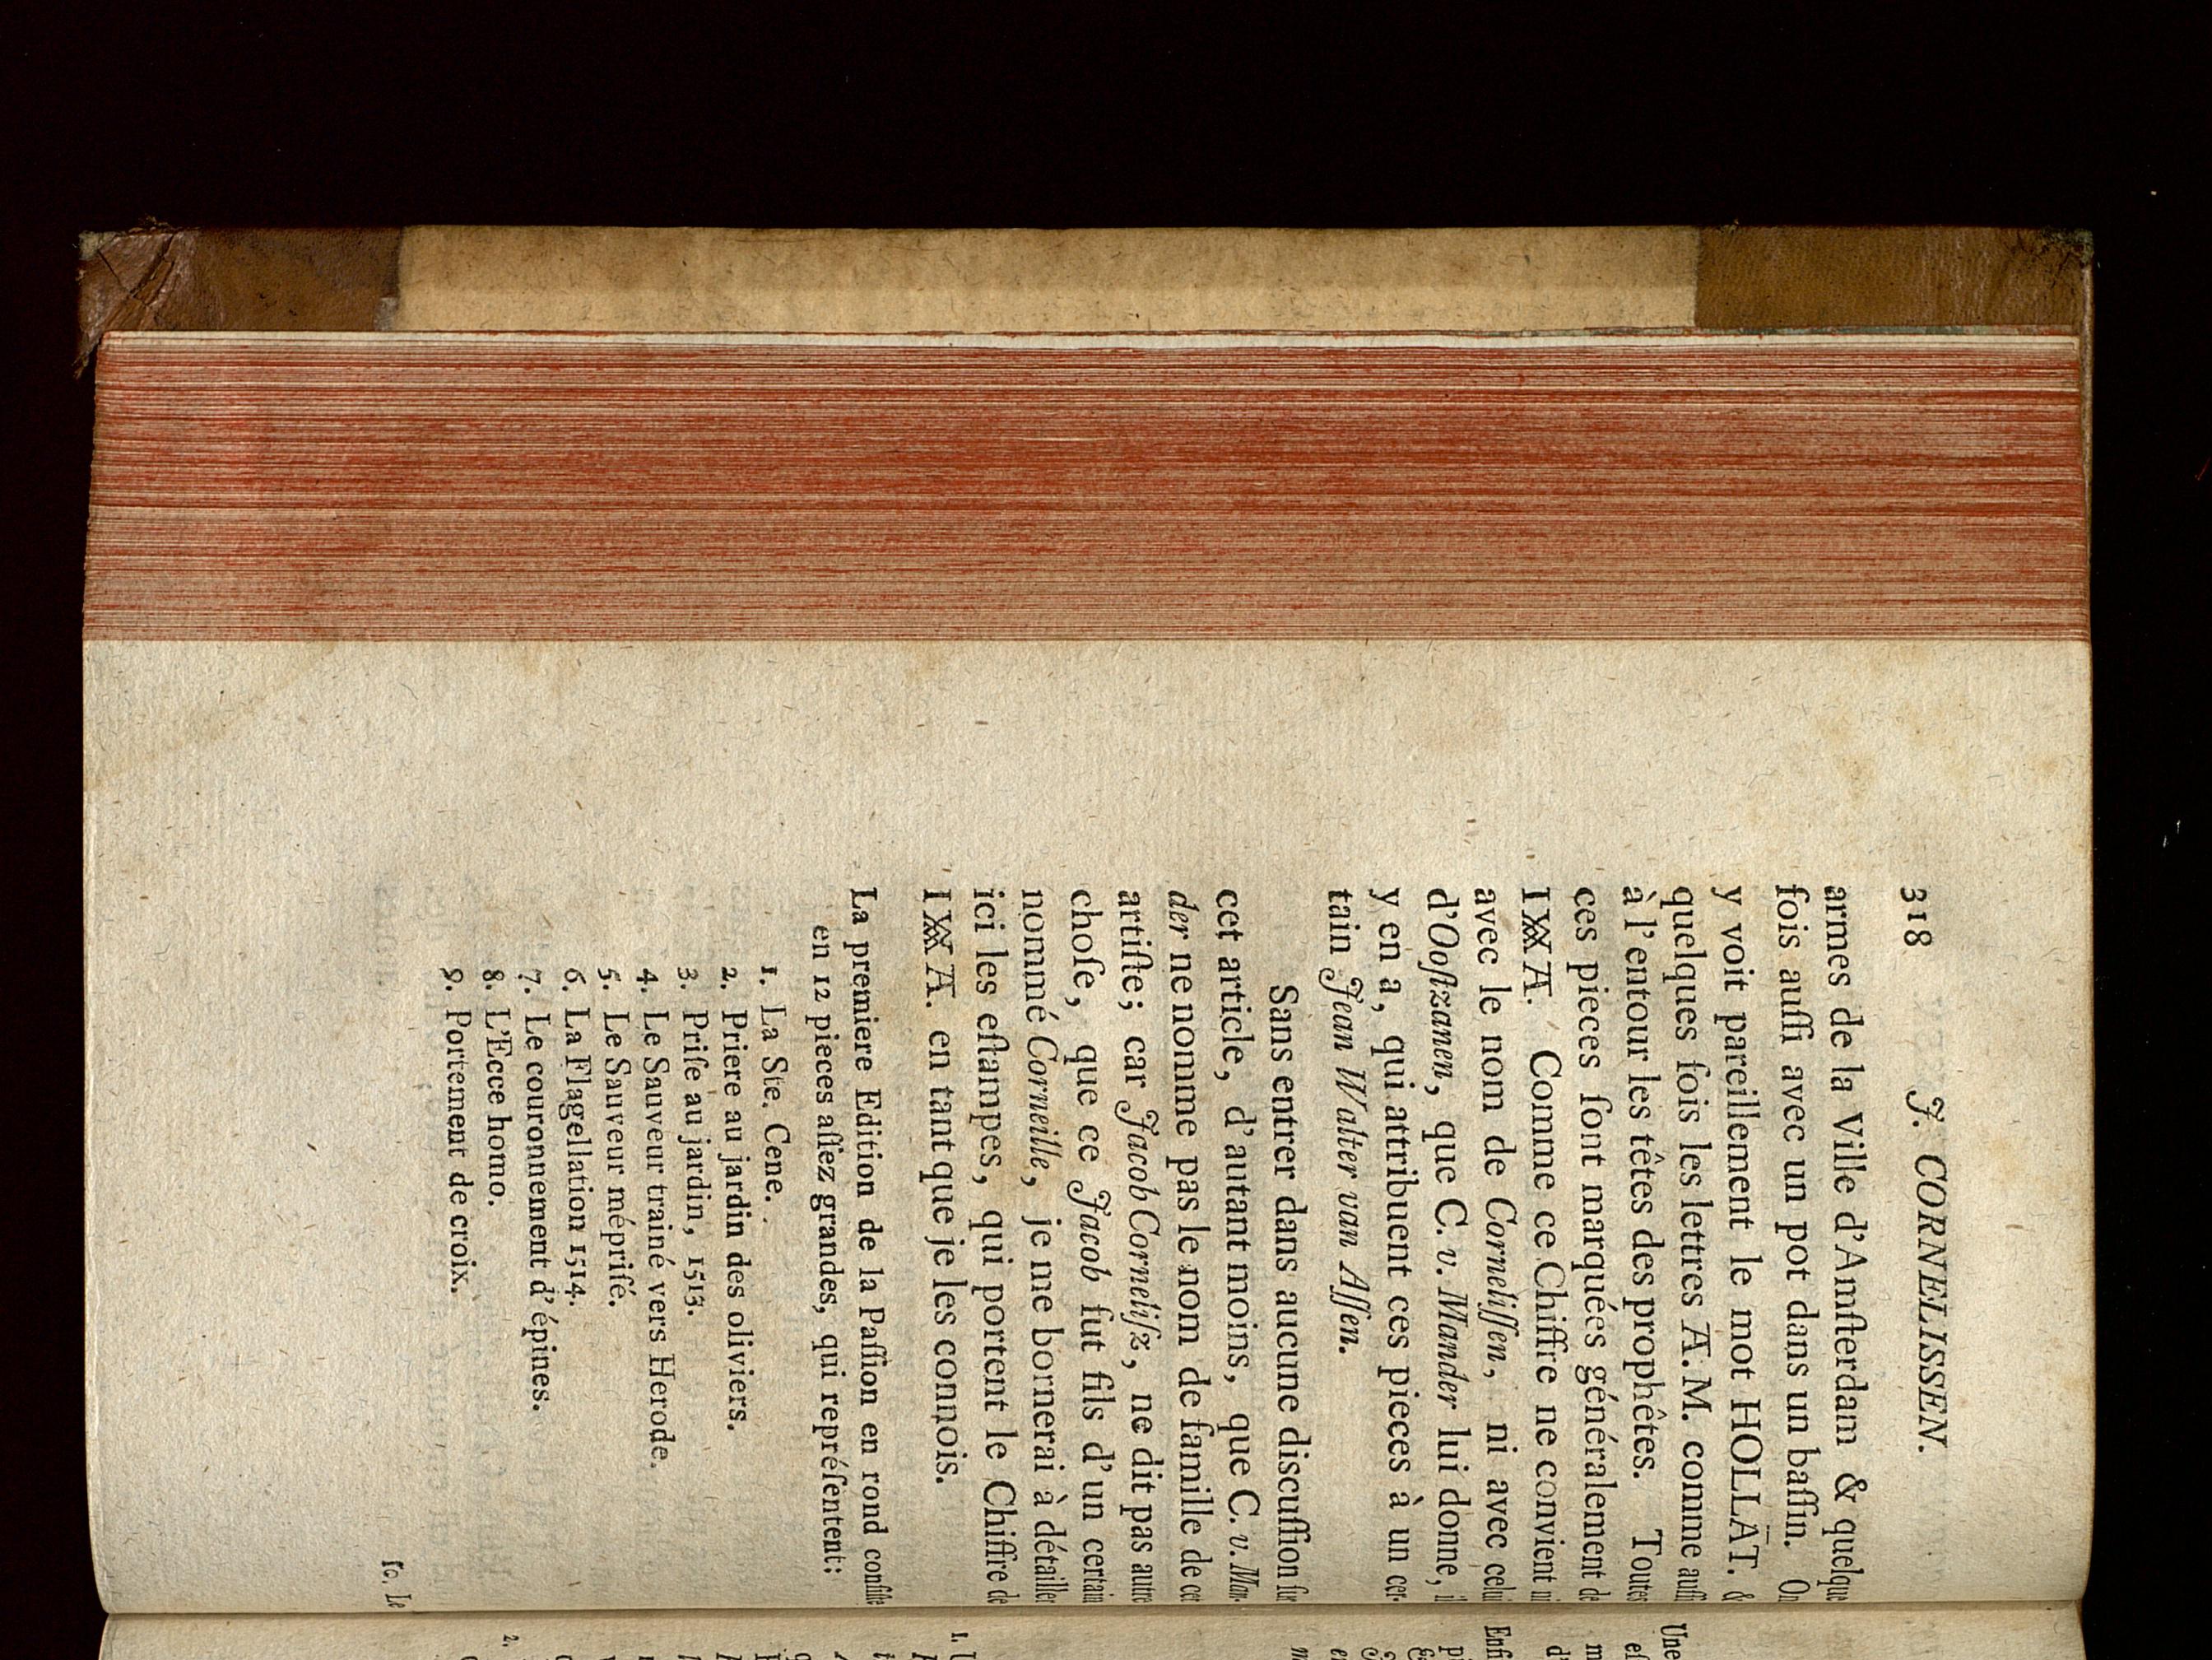 318 J. CORNELISSEN.
armes de la Ville d'Amſterdam & quelque
fois auſſi avec un pot dans un baſſin. On
y voit pareillement le mot HOLLĀT. &
quelques fois les lettres A. M. comme auſſi
à l'entour les têtes des prophêtes. Toutes
ces pieces ſont marquées généralement de
I A. Comme ce Chiffre ne convient ni
avec le nom de Corneliſſen, ni avec celui
d'Ooſtzanen, que C. v. Mander lui donne, il
y en a, qui attribuent ces pieces à un cer-
tain Jean Walter van Aſſen.
Sans entrer dans aucune discuſſion ſur
cet article, d'autant moins, que C. v. Man-
der ne nomme pas le nom de famille de cet
artiſte; car Jacob Corneliſz, ne dit pas autre
choſe, que ce Jacob fut fils d'un certain
nommé Corneille, je me bornerai à détailler
ici les eſtampes, qui portent le Chiffre de
I A. en tant que je les connois.
La premiere Edition de la Paſſion en rond conſiſte
en 12 pieces aſſez grandes, qui repréſentent:
1. La Ste. Cene.
2. Priere au jardin des oliviers.
3. Priſe au jardin, 1513.
4. Le Sauveur trainé vers Herode.
5. Le Sauveur mépriſé.
6. La Flagellation 1514.
7. Le couronnement d'épines.
8. L'Ecce homo.
9. Portement de croix.
10. Le
Une
Enfi
1.
2.